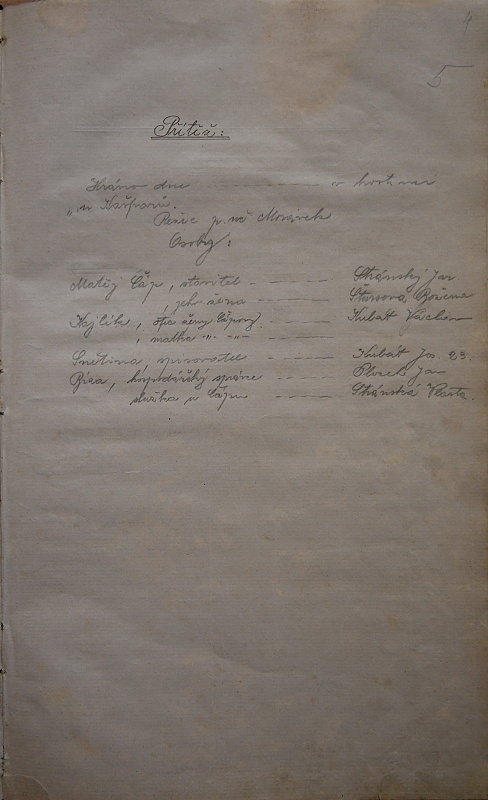 4
5
Přítěž:
Hráno dne - - - - - - - v hostinci
„u Kašparů.
Režie p. uč Morávek
Osoby:
Matěj Čáp, stavitel - - - - - Stránský Jar
, jeho žena - - - - - Božena
Hejlík, otec ženy Čápovy. Kubát Václav
, matka -„- -„- - - - -
Snětina, spisovatel - - - - Kubát Jos. 23.
Bíza, hospodářský správce - - - Jan
služka u Čápů - - - - - Stránská Vlasta.